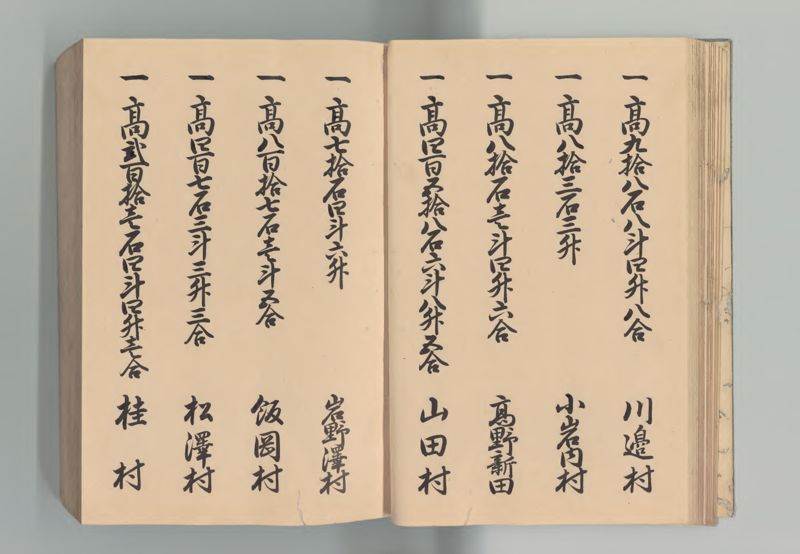 一 高九拾八石八斗四升八合 川邉村
一 高八拾三石三升 小岩内村
一 高八拾石壱斗四升六合 高野新田
一 高四百五拾八石六斗八升五合 山田村
一 高七拾石四斗六升 岩野澤村
一 高八百拾七石壱斗五合 飯岡村
一 高四百七石三斗三升三合 松澤村
一 高弐百拾壱石四斗四升壱合 桂村